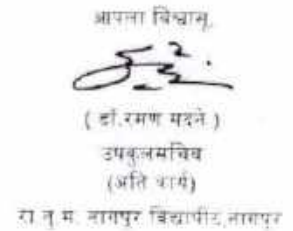 आपला विश्वासू,
( डॉ.रमण मदने )
उपकुलसचिव
(अति कार्य)
रा तु म. नागपूर विद्यापीठ,नागपूर